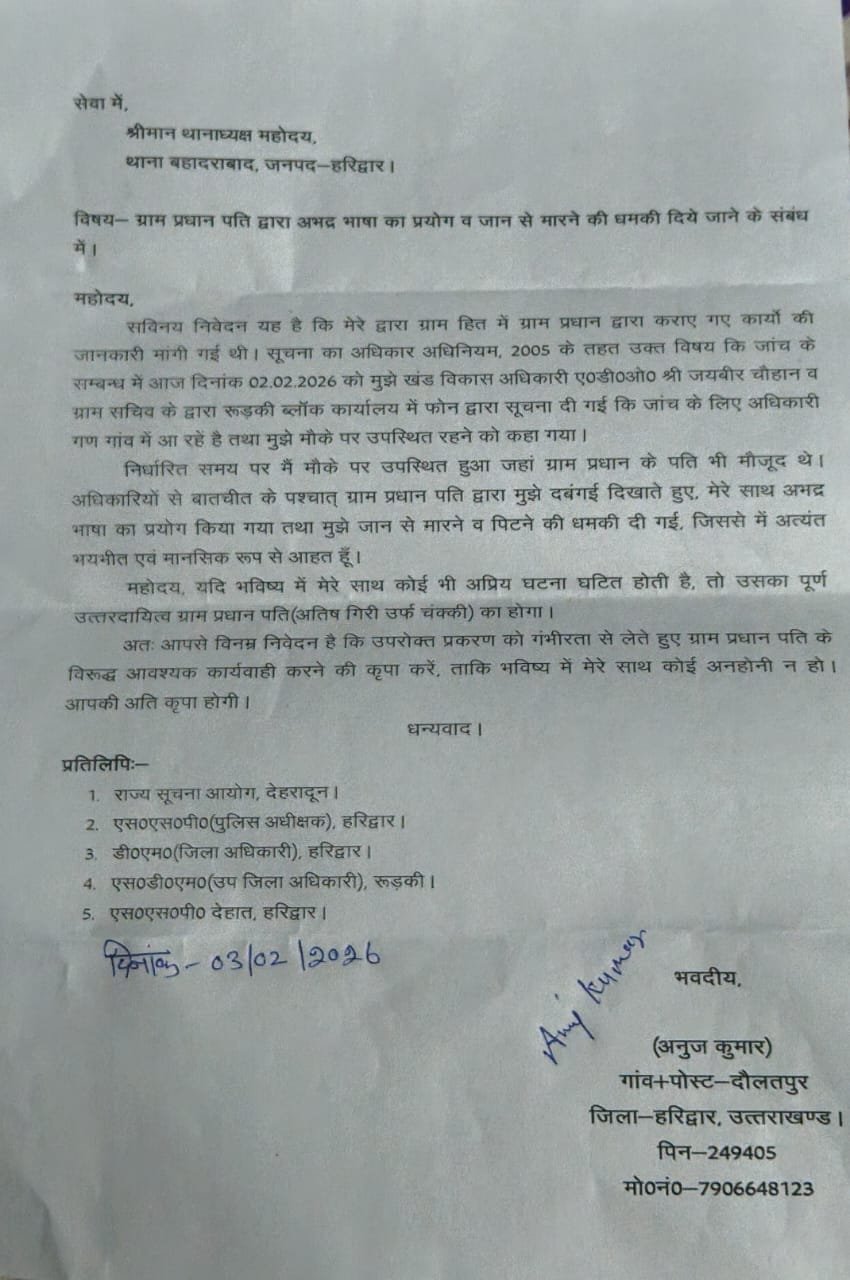 सेवा में,
श्रीमान थानाध्यक्ष महोदय,
थाना बहादराबाद, जनपद–हरिद्वार।
विषय– ग्राम प्रधान पति द्वारा अभद्र भाषा का प्रयोग व जान से मारने की धमकी दिये जाने के संबंध
में।
महोदय,
सविनय निवेदन यह है कि मेरे द्वारा ग्राम हित में ग्राम प्रधान द्वारा कराए गए कार्यो की
जानकारी मांगी गई थी। सूचना का अधिकार अधिनियम, 2005 के तहत उक्त विषय कि जांच के
सम्बन्ध में आज दिनांक 02.02.2026 को मुझे खंड विकास अधिकारी ए0डी0ओ0 श्री जयबीर चौहान व
ग्राम सचिव के द्वारा रूड़की ब्लॉक कार्यालय में फोन द्वारा सूचना दी गई कि जांच के लिए अधिकारी
गण गांव में आ रहें है तथा मुझे मौके पर उपस्थित रहने को कहा गया।
निर्धारित समय पर मैं मौके पर उपस्थित हुआ जहां ग्राम प्रधान के पति भी मौजूद थे।
अधिकारियों से बातचीत के पश्चात् ग्राम प्रधान पति द्वारा मुझे दबंगई दिखाते हुए, मेरे साथ अभद्र
भाषा का प्रयोग किया गया तथा मुझे जान से मारने व पिटने की धमकी दी गई, जिससे में अत्यंत
भयभीत एवं मानसिक रूप से आहत हूँ।
महोदय, यदि भविष्य में मेरे साथ कोई भी अप्रिय घटना घटित होती है, तो उसका पूर्ण
उत्तरदायित्व ग्राम प्रधान पति(अतिष गिरी उर्फ चंक्की) का होगा।
अतः आपसे विनम्र निवेदन है कि उपरोक्त प्रकरण को गंभीरता से लेते हुए ग्राम प्रधान पति के
विरूद्ध आवश्यक कार्यवाही करने की कृपा करें, ताकि भविष्य में मेरे साथ कोई अनहोनी न हो।
आपकी अति कृपा होगी।
धन्यवाद।
प्रतिलिपिः–
1. राज्य सूचना आयोग, देहरादून।
2. एस0एस0पी0(पुलिस अधीक्षक), हरिद्वार।
3. डी0एम0(जिला अधिकारी), हरिद्वार।
4. एस0डी0एम0(उप जिला अधिकारी), रूड़की।
5. एस0एस0पी0 देहात, हरिद्वार।
दिनांक - 03/02/2026
Anuj Kumar
भवदीय,
(अनुज कुमार)
गांव+पोस्ट–दौलतपुर
जिला–हरिद्वार, उत्तराखण्ड।
पिन–249405
मो0नं0–7906648123